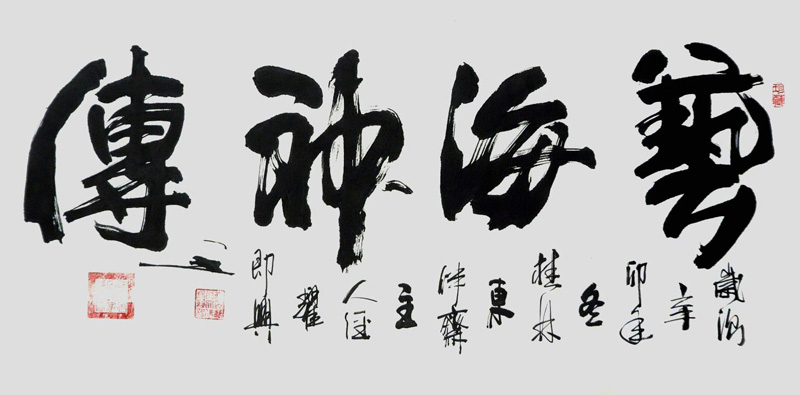 藝海神傳
歲次辛卯年冬桂林東齋主人耀即興